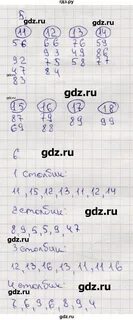 5
11 12 13 14
56 66 76 59
93 49 86
92 75 58 77
47 84
83
gdz.ru gdz.ru
15 16 17 18
87 79 89 99
69 88
gdz.ru
6
1 столбик
11, 15, 12, 13, 11, 12, 14
2 столбик
8 9, 5, 5, 9, 4 7
3 столбик
12, 13, 16, 13, 11, 11 16
4 столбик
7, 6, 9, 6, 8, 9, 4